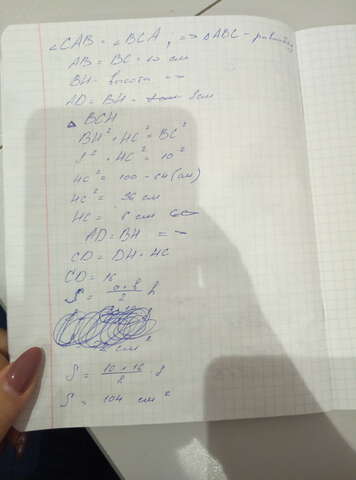 ∠CAB = ∠BCA, => △ABC - равнобед
AB = BC = 10 см
BH - высота =>
AD = BH = 8см
△ BCH
BH² + HC² = BC²
8² + HC² = 10²
HC² = 100 - 64 (см)
HC² = 36 см
HC = 6 см
AD = BH =>
CD = DH + HC
CD = 16
S = a + b / 2 h
2 см²
S = 10 + 16 / 2 8
S = 104 см²